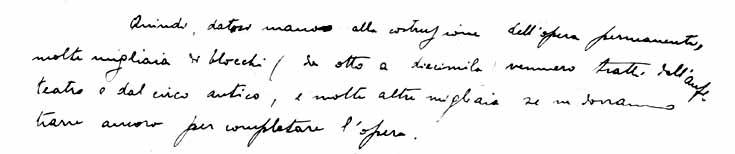 Quindi, datosi mano alla costruzione dell'opera permanente,
molte migliaia di blocchi (da otto a diecimila) vennero tratti dall'anfi-
teatro e dal circo antico, e molte altre migliaia se ne dovranno
trarre ancora per completare l'opera.